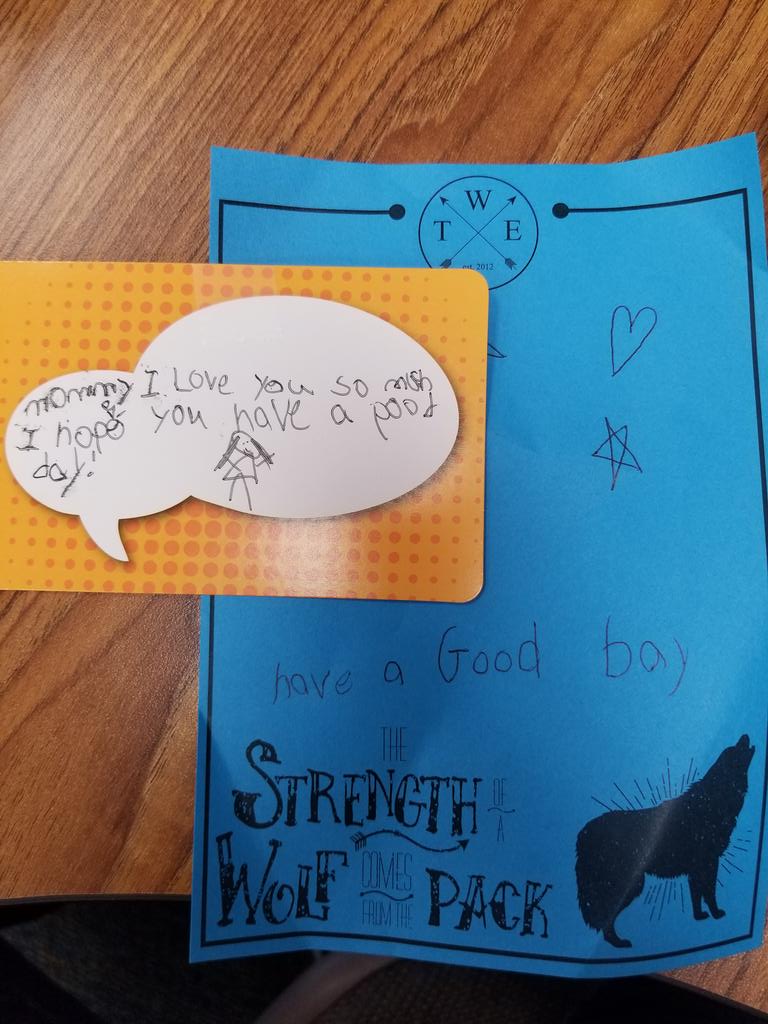 W
T E
est. 2012
mommy I Love you so mch
I hope you have a poot
day!
have a Good bay
THE
STRENGTH OF A
WOLF COMES FROM THE PACK